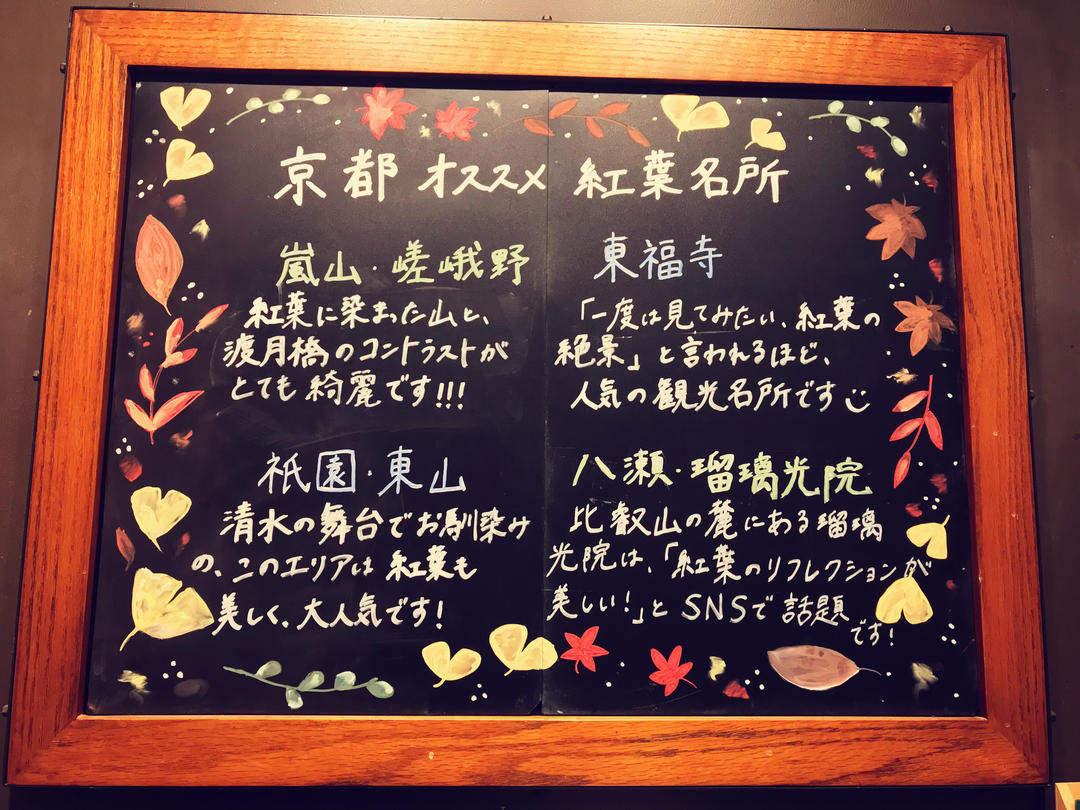 京都 オススメ 紅葉名所
嵐山・嵯峨野
紅葉に染まった山と、
渡月橋のコントラストが
とても綺麗です!!!
東福寺
「一度は見てみたい、紅葉の
絶景」と言われるほど、
人気の観光名所です
祇園・東山
清水の舞台でお馴染み
の、このエリアは紅葉も
美しく、大人気です!
八瀬・瑠璃光院
比叡山の麓にある瑠璃
光院は、「紅葉のリフレクションが
美しい!」とSNSで話題
です!